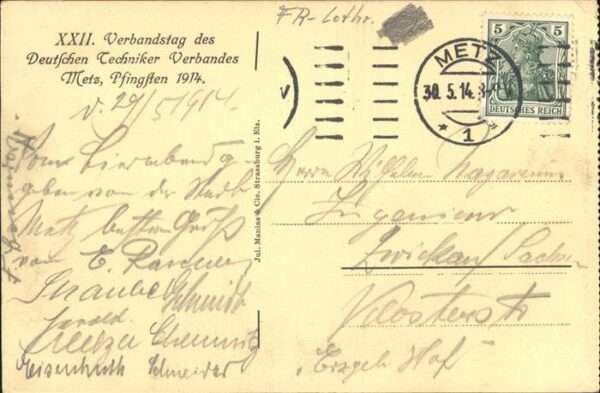 XXII. Verbandstag des
Deutschen Techniker Verbandes
Metz, Pfingsten 1914.
FR-Lothr.
v. 29/5 1914.
Vom Bierabend ge-
geben von der Stadt
Metz besten Gruß
von E.
Straube Schmidt
Chemnitz
Eisenhuth Schneider
Jul. Manias & Cie. Strassburg i. Els.
METZ
30.5.14.
* 1
5 5
DEUTSCHES REICH
Herrn Wilhelm
Ingenieur
Zwickau Sachsen
Klosterstr
"Erzgeb Hof"